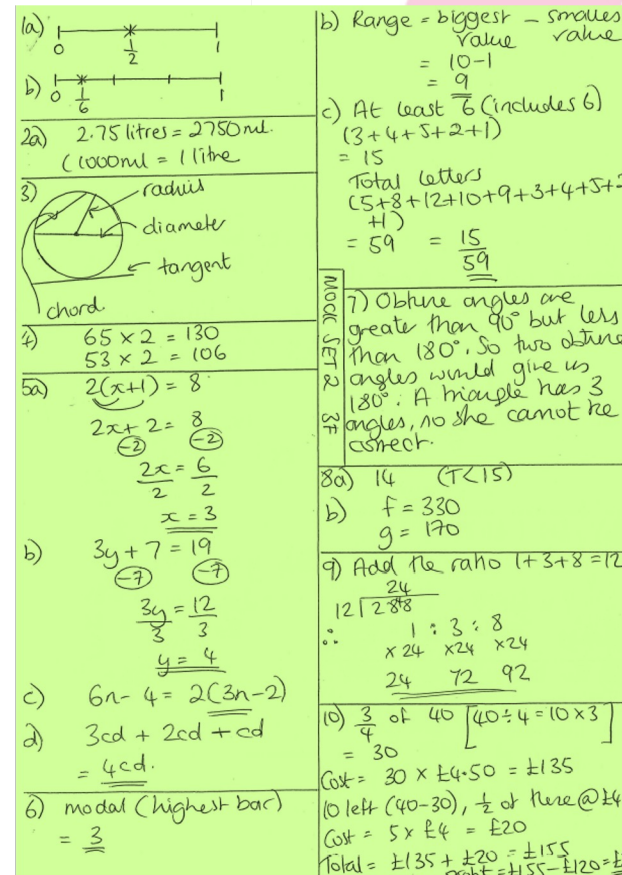 1a)
0 1/2 1
b) 0 1/6 1
2a) 2.75 litres = 2750ml.
(1000ml = 1 litre
3) radius
diameter
tangent
chord
4) 65 × 2 = 130
53 × 2 = 106
5a) 2(x+1) = 8
2x + 2 = 8
-2 -2
2x/2 = 6/2
x = 3
b) 3y + 7 = 19
-7 -7
3y/3 = 12/3
y = 4
c) 6n - 4 = 2(3n-2)
d) 3cd + 2cd + cd
= 4cd.
6) modal (highest bar)
= 3
b) Range = biggest - smalles
value value
= 10-1
= 9
c) At least 6 (includes 6)
(3+4+5+2+1)
= 15
Total letters
(5+8+12+10+9+3+4+5+2
+1)
= 59 = 15/59
MOCK SET 2 3F
7) Obtuse angles are
greater than 90° but less
than 180°. So two obtuse
angles would give us
180°. A triangle has 3
angles, so she cannot be
correct.
8a) 14 (T<15)
b) f = 330
g = 170
9) Add the ratio 1+3+8=12
24
12 288
4
∴ 1 : 3 : 8
×24 ×24 ×24
24 72 92
10) 3/4 of 40 [40÷4=10×3]
= 30
Cost = 30 × £4.50 = £135
10 left (40-30), 1/2 of these @ £4
Cost = 5 × £4 = £20
Total = £135 + £20 = £155
= £155-£120=£